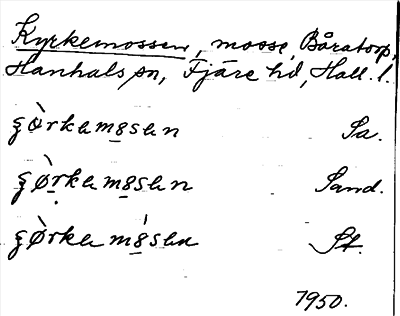 Kyrkemossen, mosse, Båratorp,
Hanhals sn, Fjäre hd, Hall. l.
ʂø̀rkəmɵsən Sa.
ʂø̀rkəmɵsən Sand.
ʂø̀rkəmɵ́sən St.
1950.